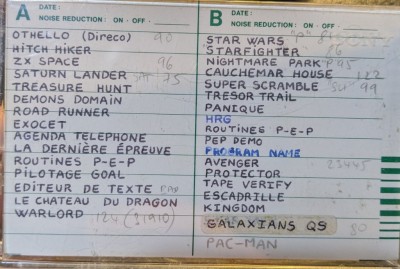 A DATE:
NOISE REDUCTION: ON · OFF ·
OTHELLO (Direco) 90
HITCH HIKER
ZX SPACE 96
SATURN LANDER 75
TREASURE HUNT
DEMONS DOMAIN
ROAD RUNNER
EXOCET
AGENDA TELEPHONE
LA DERNIÈRE ÉPREUVE
ROUTINES P-E-P
PILOTAGE GOAL
EDITEUR DE TEXTE
LE CHATEAU DU DRAGON
WARLORD
B DATE:
NOISE REDUCTION: ON · OFF ·
STAR WARS "P"
STARFIGHTER 86
NIGHTMARE PARK P95
CAUCHEMAR HOUSE 122
SUPER SCRAMBLE 99
TRESOR TRAIL
PANIQUE
HRG
ROUTINES P-E-P
PEP DEMO
PROGRAM NAME
AVENGER
PROTECTOR
TAPE VERIFY
ESCADRILLE
KINGDOM
GALAXIANS QS 80
PAC-MAN